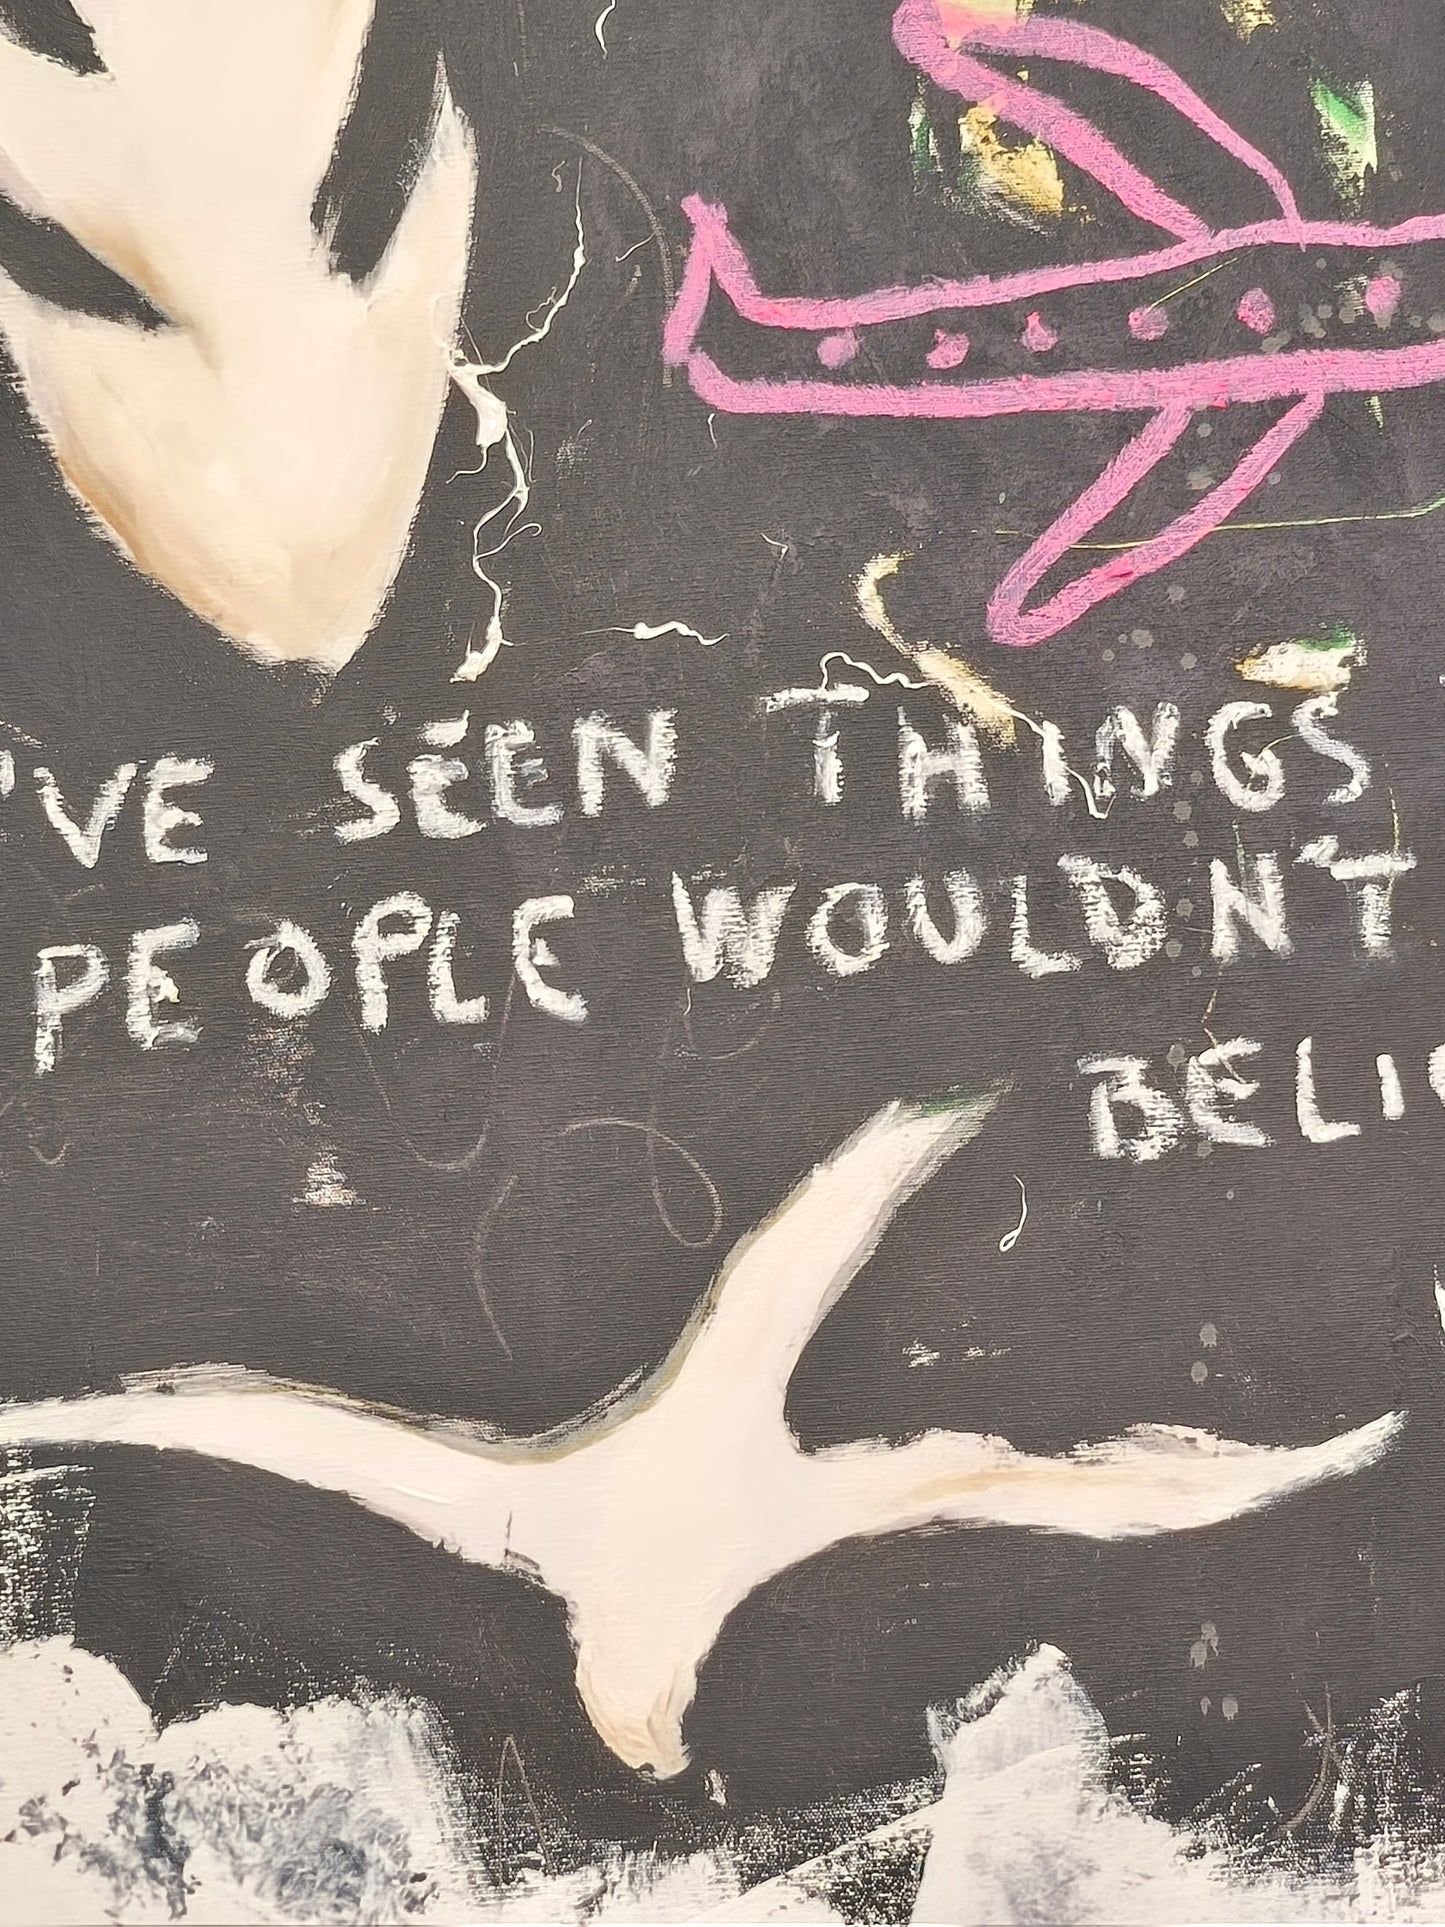 'VE SEEN THINGS
PEOPLE WOULDN'T
BELIE